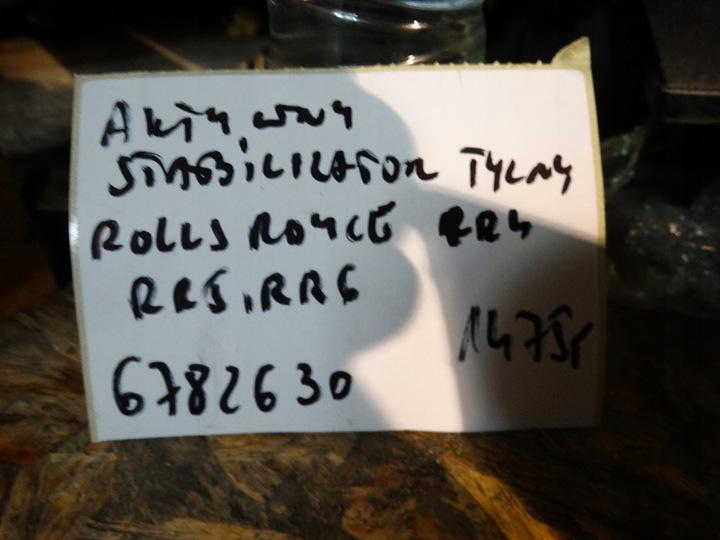 AKTYWNY
STABILIZATOR TYLNY
ROLLS ROYCE RR4
RR5, RR6
1475r
6782630